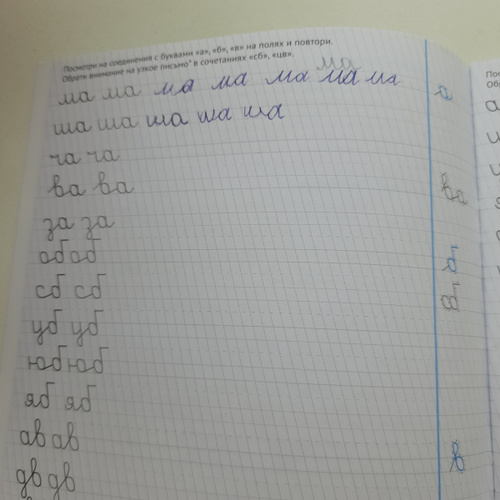 Посмотри на соединения с буквами «а», «б», «в» на полях и повтори.
Обрати внимание на узкое письмо* в сочетаниях «сб», «цв».
ма
ма ма ма ма ма ма ма
а
ша ша ша ша ша
ча ча
ва ва
ва
за за
об об
б
сб сб
сб
уб уб
юб юб
яб яб
ав ав
в
дв дв